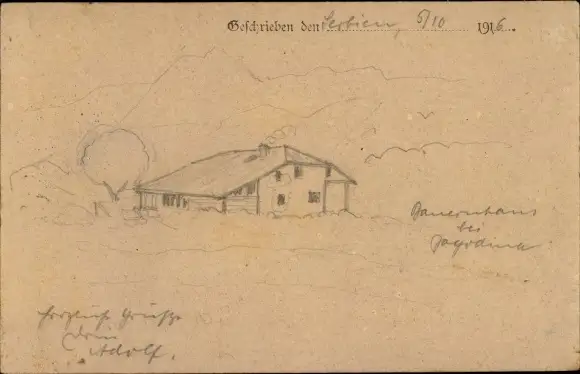 Geschrieben den Serbien, 5/10 1916.
Bauernhaus
bei
Herzliche Grüße
Dein
Adolf.